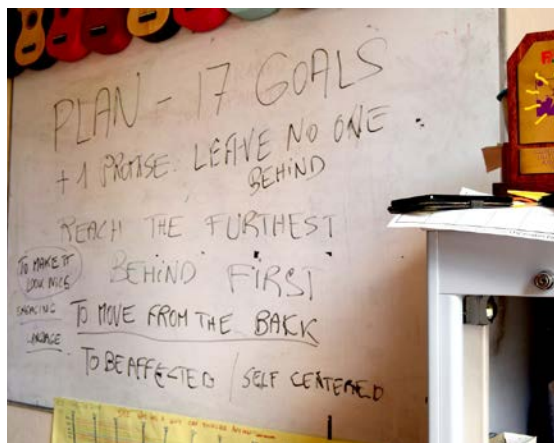 PLAN - 17 GOALS
+ 1 PROMISE: LEAVE NO ONE
BEHIND
REACH THE FURTHEST
BEHIND FIRST
TO MAKE IT
LOOK NICE
ENGAGING
LANGUAGE
TO MOVE FROM THE BAKK
TO BE AFFECTED / SELF CENTERED